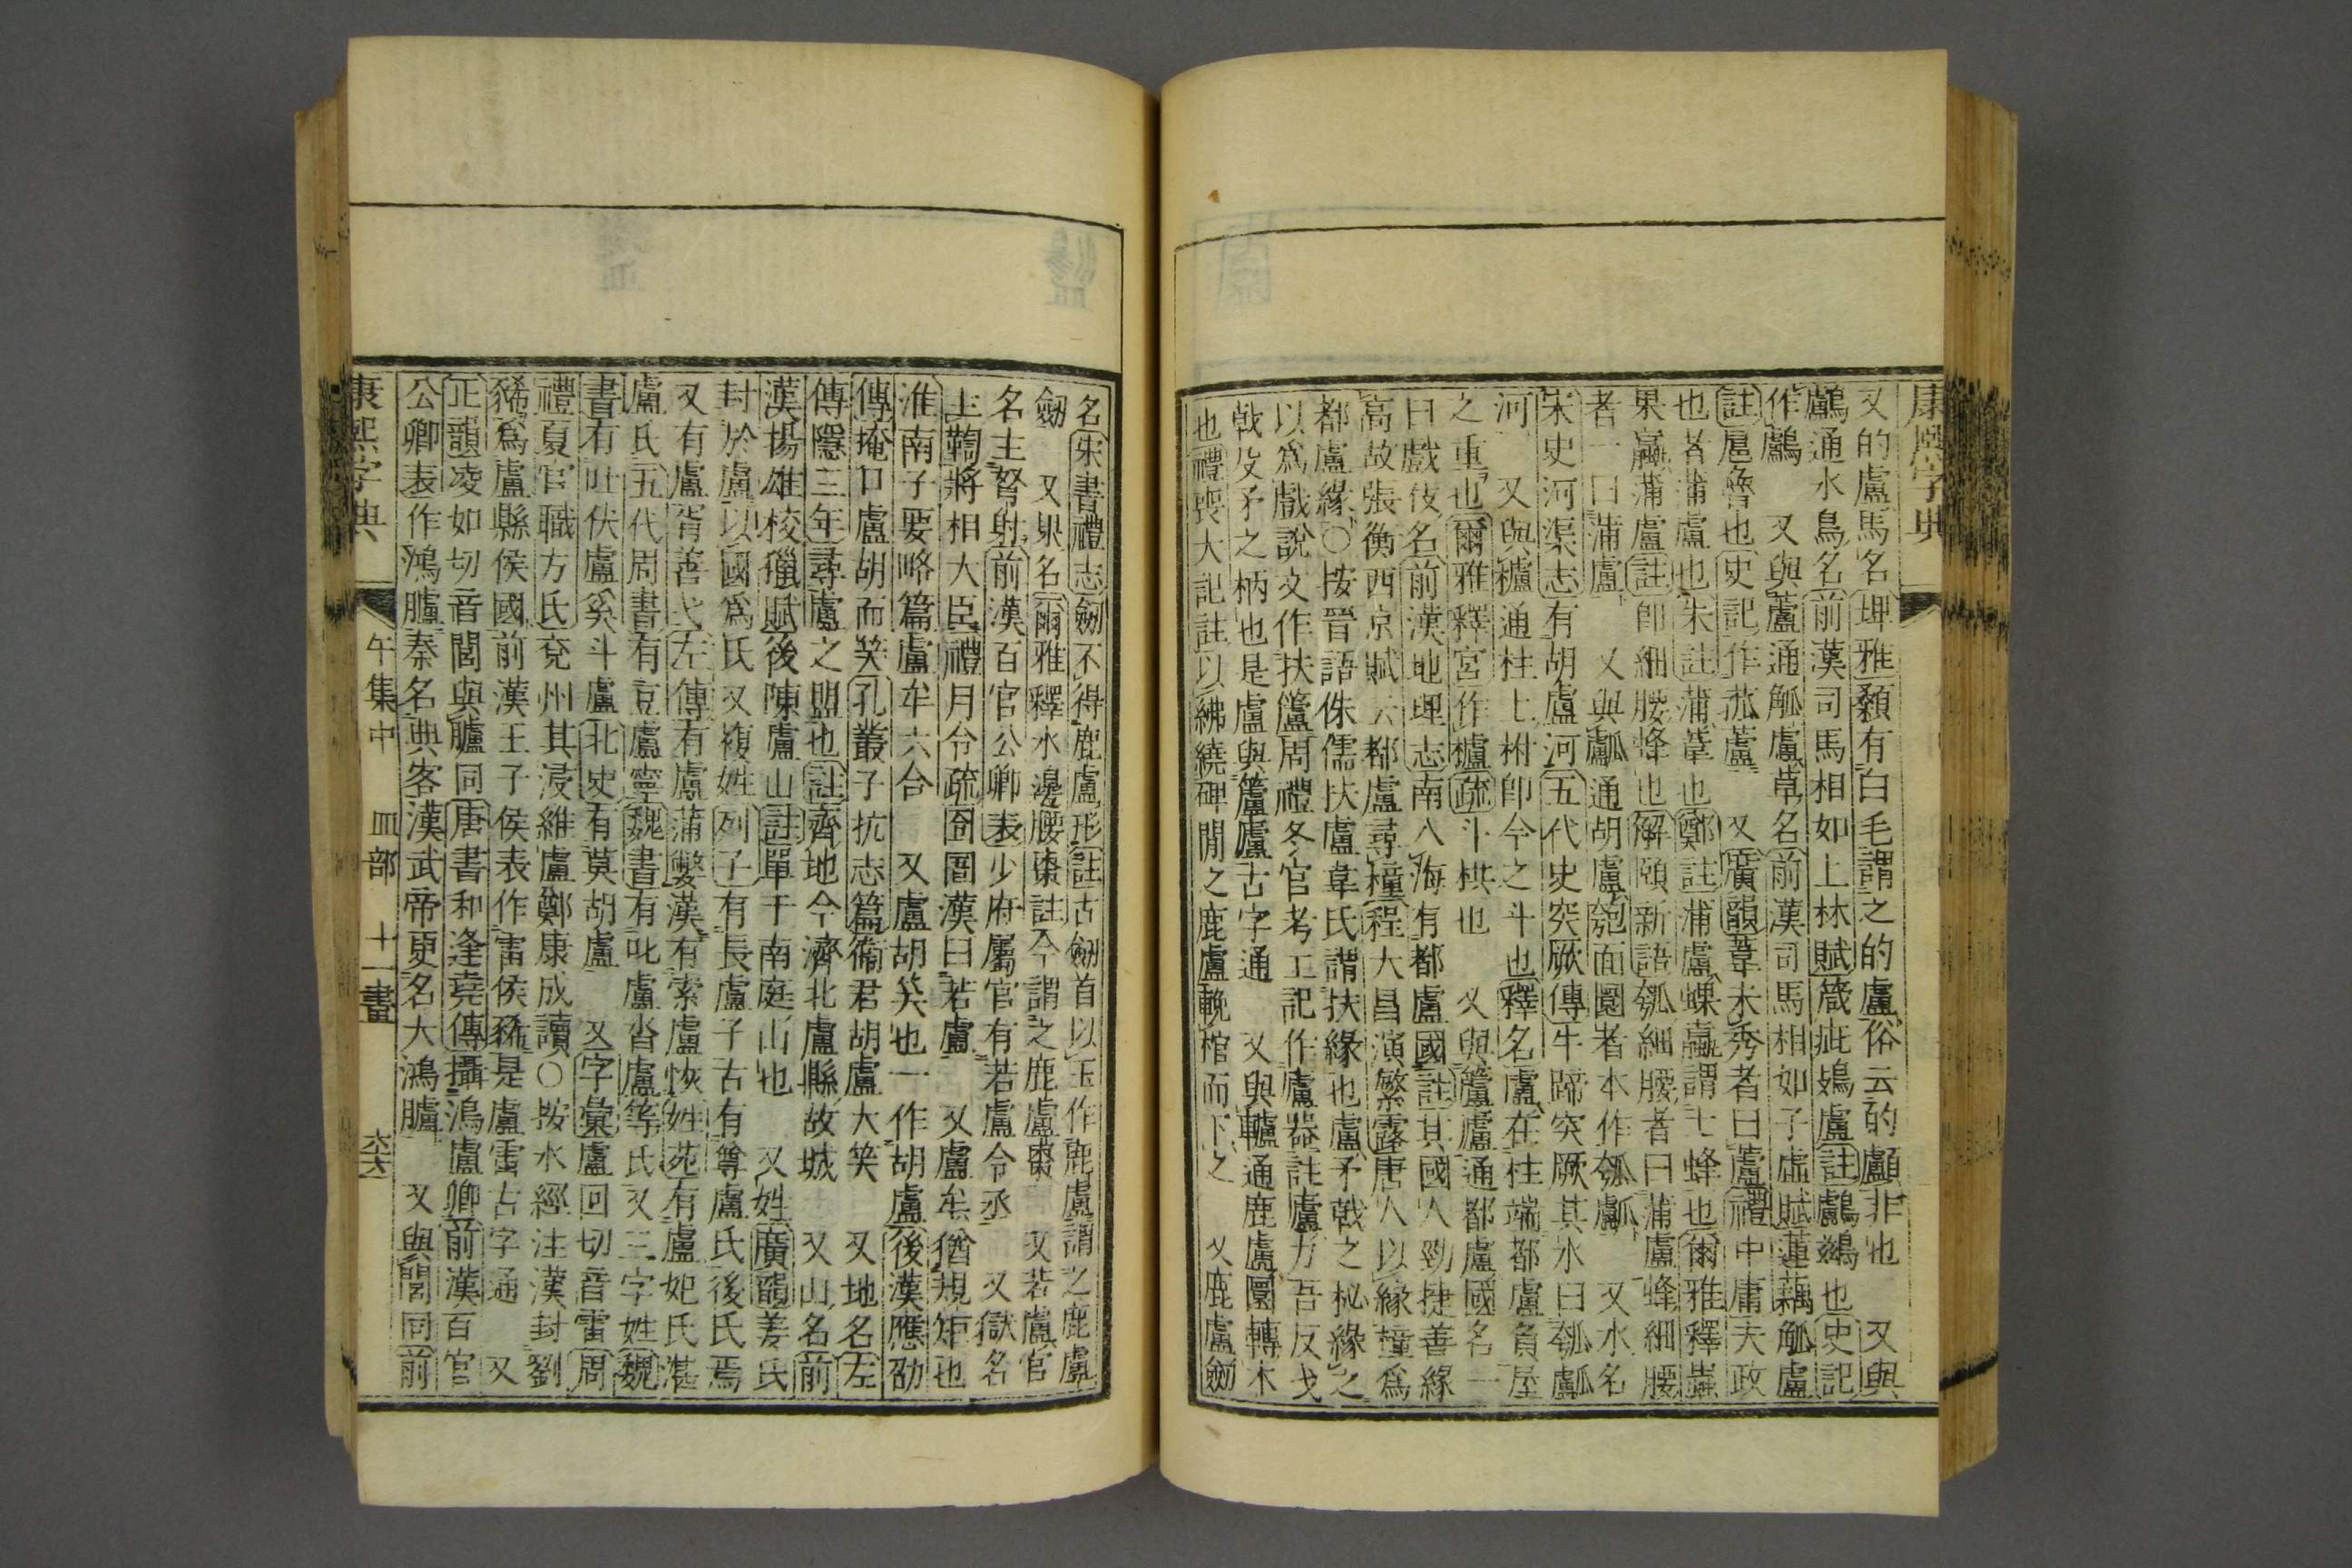 康熙字典
又的盧馬名埤雅顙有白毛謂之的盧俗云的顱非也 又與
鸕通水鳥名前漢司馬相如上林賦箴疵鵁盧註鸕鷀也史記
作鸕 又與蘆通觚盧草名前漢司馬相如子虛賦蓮藕觚盧
註扈魯也史記作菰蘆 又廣韻葦未秀者曰蘆禮中庸夫政
也者蒲盧也朱註蒲葦也鄭註蒲盧蜾蠃謂土蜂也爾雅釋蟲
果蠃蒲盧註卽細腰蜂也解頤新語瓠細腰者曰蒲盧蜂細腰
者一曰蒲盧 又與㼚通胡盧匏面圜者本作瓠㼚 又水名
宋史河渠志有胡盧河五代史突厥傳牛蹄突厥其水曰瓠㼚
河 又與櫨通柱上柎卽今之斗也釋名盧在柱端都盧負屋
之重也爾雅釋宮作櫨疏斗栱也 又與籚蘆通都盧國名一
曰戲伎名前漢地理志南入海有都盧國註其國人勁捷善緣
高故張衡西京賦云都盧尋橦程大昌演繁露唐人以緣橦爲
都盧緣○按晉語侏儒扶盧韋氏謂扶緣也盧矛戟之柲緣之
以爲戲說文作扶籚周禮冬官考工記作廬器註廬方吾反戈
戟及矛之柄也是盧與籚廬古字通 又與轤通鹿盧圜轉木
也禮喪大記註以紼繞碑閒之鹿盧輓棺而下之 又鹿盧劒
名宋書禮志劒不得鹿盧形註古劒首以玉作鹿盧謂之鹿盧
劒 又果名爾雅釋木邊腰棗註今謂之鹿盧棗 又若盧官
名主弩射前漢百官公卿表少府屬官有若盧令丞 又獄名
主鞫將相大臣禮月令疏囹圄漢曰若盧 又盧牟猶規矩也
淮南子要略篇盧牟六合 又盧胡笑也一作胡盧後漢應劭
傳掩口盧胡而笑孔叢子抗志篇衞君胡盧大笑 又地名左
傳隱三年尋盧之盟也註齊地今濟北盧縣故城 又山名前
漢揚雄校獵賦後陳盧山註單于南庭山也 又姓廣韻姜氏
封於盧以國爲氏又複姓列子有長盧子古有尊盧氏後氏焉
又有盧胥善弋左傳有盧蒲嫳漢有索盧恢姓苑有盧妃氏湛
盧氏五代周書有豆盧寧魏書有叱盧沓盧等氏又三字姓魏
書有吐伏盧奚斗盧北史有莫胡盧 又字彙盧回切音雷周
禮夏官職方氏兗州其浸維盧鄭康成讀○按水經注漢封劉
豨爲盧縣侯國前漢王子侯表作雷侯豨是盧雷古字通 又
正韻凌如切音閭與臚同唐書和逢堯傳攝鴻盧卿前漢百官
公卿表作鴻臚秦名典客漢武帝更名大鴻臚 又與閭同前
康熙字典 午集中 皿部 十一畫